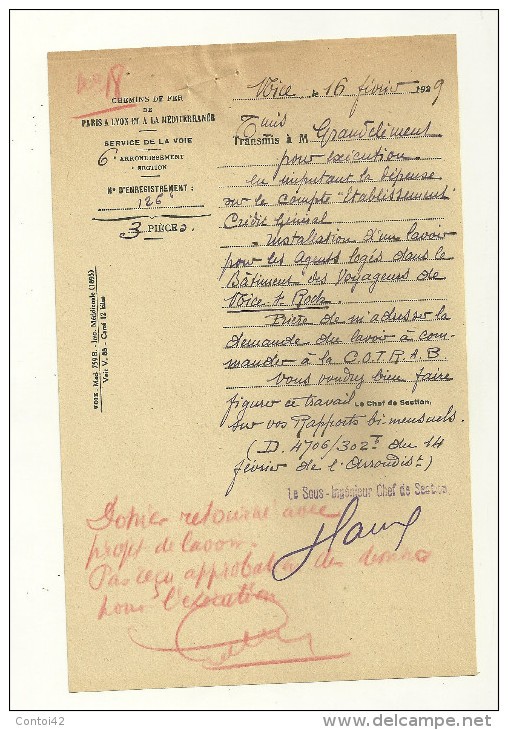 CHEMINS DE FER
DE
PARIS A LYON ET A LA MÉDITERRANÉE
SERVICE DE LA VOIE
6e ARRONDISSEMENT
SECTION
N° D'ENREGISTREMENT :
126
3 PIÈCES.
VOIE. Mod. 759 B. - Imp. Méridionale (1893)
Voir V. 85 - Carré 12
Nice, le 16 février 1929
Transmis à M Grandclément
pour exécution.
en imputant la dépense
sur le compte "Etablissement"
Crédit Général
- Installation d'un lavoir
pour les Agents logés dans le
Bâtiment des Voyageurs de
Nice-St Roch.
Prière de m'adresser la
demande du lavoir à com-
mander à la C.O.T.R.A.B
Vous voudrez bien faire
figurer ce travail Le Chef de Section,
sur vos Rapports bi mensuels.
(D. 4706/302 du 14
février de l'Arrondist)
Le Sous-Ingénieur Chef de Section,
Dossier retourné avec
projet de lavoir.
Pas reçu approbation des
pour l'exécution
Contoi42
www.delcampe.net